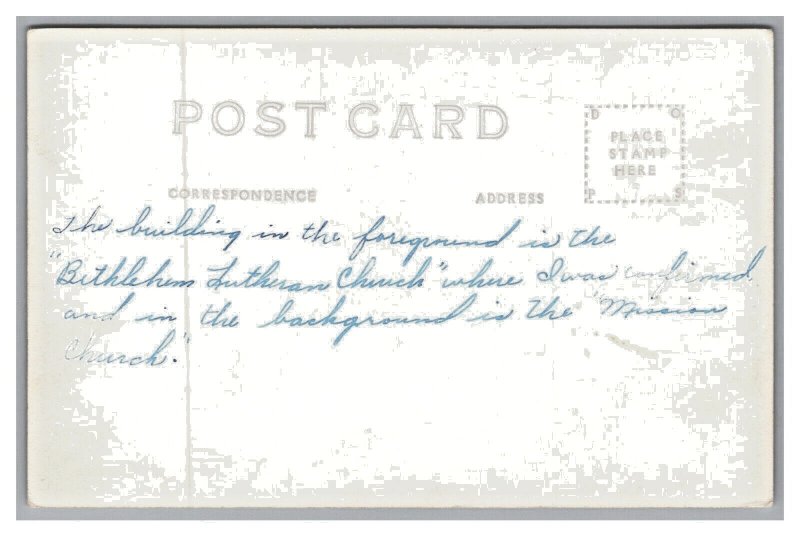 POST CARD
D O
PLACE
STAMP
HERE
P S
CORRESPONDENCE ADDRESS
The building in the foreground is the
"Bethlehem Lutheran Church" where I was confirmed
and in the background is the "Mission
Church."